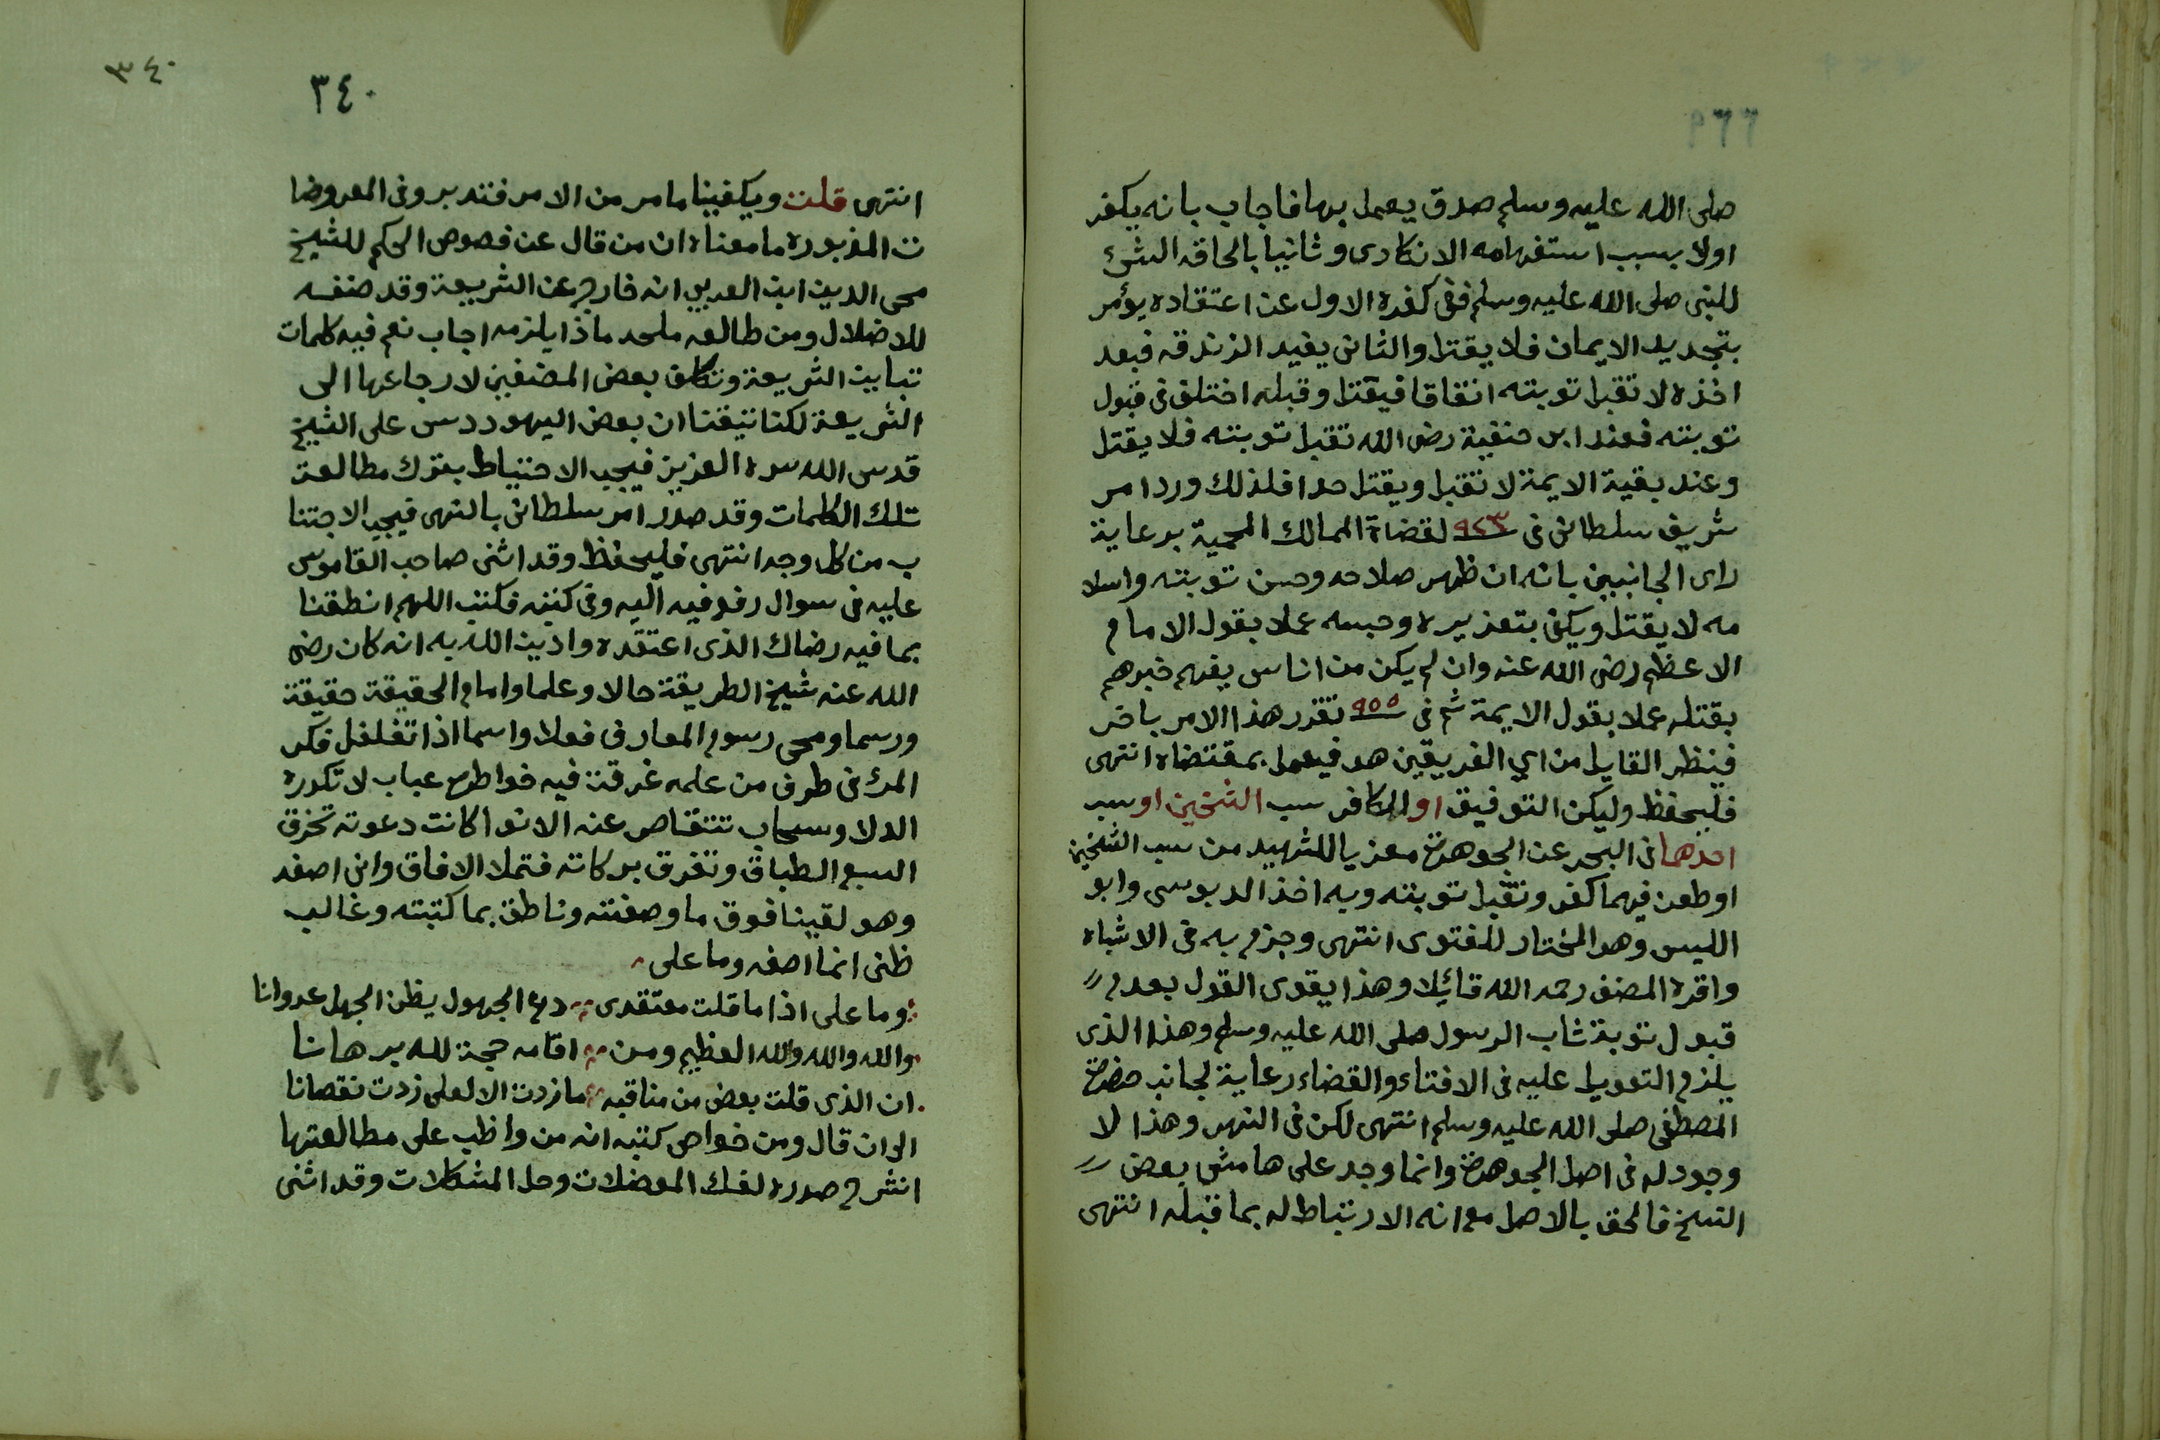 صلى الله عليه وسلم صدق يعمل بها فاجاب بانه يكفر
اولا بسبب استفهامه الانكارى وثانيا بالحاقه الشئ
للنبى صلى الله عليه وسلم ففى كفره الاول عن اعتقاده يؤمر
بتجديد الايمان فلا يقتل والثانى يفيد الزندقه فبعد
اخذه لا تقبل توبته اتفاقا فيقتل وقبله اختلف فى قبول
توبته فعند ابى حنفية رضى الله تقبل توبته فلا يقتل
وعند بقية الايمة لا تقبل ويقتل حدا فلذلك ورد امر
شريف سلطانى فى ٩٤٣ لقضاة الممالك المحمية برعاية
راى الجانبين بانه ان ظهر صلاحه وحسن توبته واسلا
مه لا يقتل ويكفى بتعزيره وحبسه عملا بقول الامام
الاعظم رضى الله عنه وان لم يكن من اناس يفهم خبرهم
بقتله عملا بقول الايمة ثم فى ٩٥٥ تقرر هذا الامر باخر
فينظر القايل من اي الفريقين هو فيعمل بمقتضاه انتهى
فليحفظ وليكن التوفيق او الكافر سب الشخين او سب
احدهما فى البحر عن الجوهرة معزيا للشهيد من سب الشيخين
او طعن فيهما كفر وتقبل توبته وبه اخذ الدبوسى وابو
الليس وهو المختار للفتوى انتهى وجزم به فى الاشباه
واقره المصنف رحمه الله قائلا وهذا يقوى القول بعدم
قبول توبة شاب الرسول صلى الله عليه وسلم وهذا الذى
يلزم التعويل عليه فى الافتاء والقضاء رعاية لجانب حضرة
المصطفى صلى الله عليه وسلم انتهى لكن فى النهر وهذا لا
وجود له فى اصل الجوهرة وانما وجد على هامش بعض
النسخ فالحق بالاصل مع انه الارتباط له بما قبله انتهى
٣٤٠
٣٤٠
انتهى قلت ويكفينا ما مر من الامر فتدبر وفى المعروضا
ت المذبورة ما معناه ان من قال عن فصوص الحكم للشيخ
محى الدين ابن العربي انه خارج عن الشريعة وقد صنفه
للاضلال ومن طالعه ملحد ماذا يلزمه اجاب نعم فيه كلمات
تباين الشريعة وتكلف بعض المصنفين لارجاعها الى
الشريعة لكنا تيقنا ان بعض اليهود دس على الشيخ
قدس الله سره العزيز فيجب الاحتياط بترك مطالعة
تلك الكلمات وقد صدر امر سلطانى بالنهى فيجب الاجتنا
ب من كل وجه انتهى فليحفظ وقد اثنى صاحب القاموس
عليه فى سوال رفع فيه اليه وفى كتبه فكتب اللهم انطقنا
بما فيه رضاك الذى اعتقده وادين الله به انه كان رضى
الله عنه شيخ الطريقة حالا وعلما وامام الحقيقة حقيقة
ورسما ومحى رسوم المعارف فعلا واسما اذا تغلغل فكر
المرء فى طرف من علمه غرقت فيه خواطره عباب لا تكدره
الدلا وسحاب تتقاص عنه الانوا كانت دعوته تخرق
السبع الطباق وتفرق بركاته فتملا الافاق وانى اصفه
وهو لقينا فوق ما وصفته وناطق بما كتبته وغالب
ظنى انما اصفه وما على
وما على اذا ما قلت معتقدى دع الجهول يظن الجهل عدوانا
والله والله والله العظيم ومن اقامه حجة لله برهانا
ان الذى قلت بعض من مناقبه ما زدت الا لعلى زدت نقصانا
الى ان قال ومن خواص كتبه انه من واظب على مطالعتها
انشرح صدره لفك المعضلات وحل المشكلات وقد اثنى